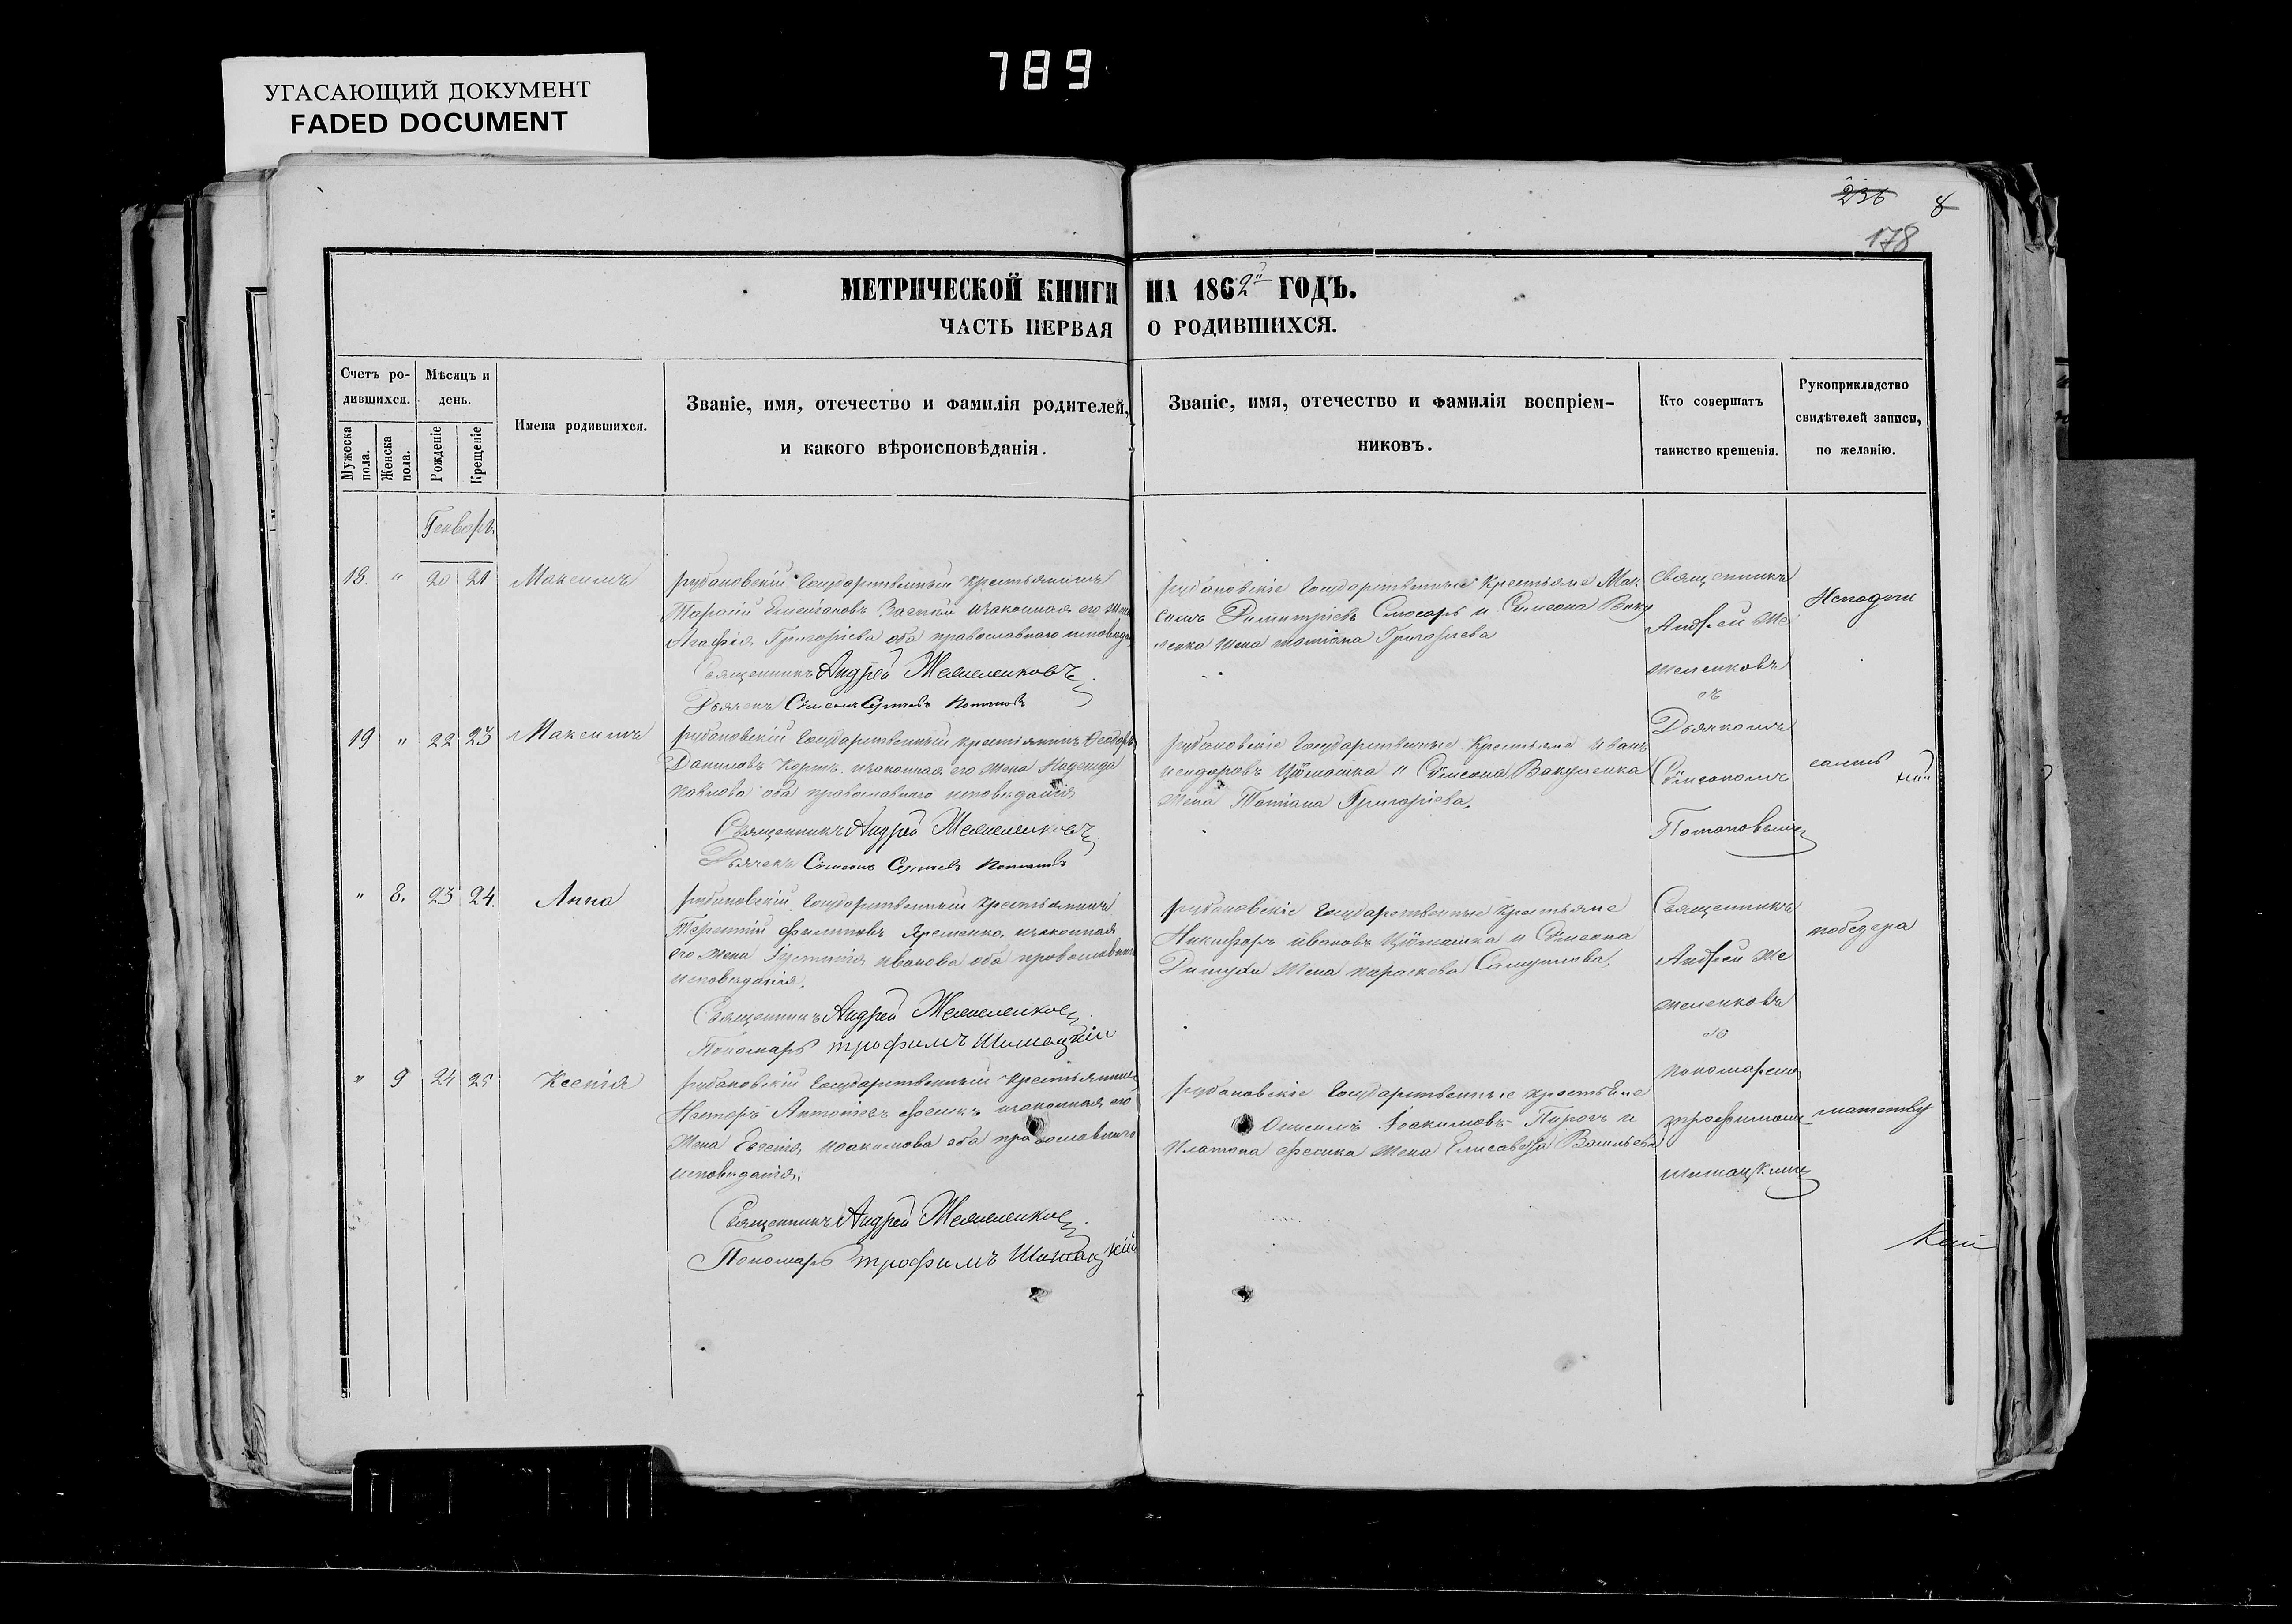 789
УГАСАЮЩИЙ ДОКУМЕНТ
FADED DOCUMENT
236 8
178
МЕТРИЧЕСКОЙ КНИГИ НА 1862й ГОДЪ.
ЧАСТЬ ПЕРВАЯ О РОДИВШИХСЯ.
Счетъ ро-
дившихся.
Мужеска пола.
Женска пола.
Мѣсяцъ и
день.
Рожденіе
Крещеніе
Имена родившихся.
Званіе, имя, отечество и фамилія родителей,
и какого вѣроисповѣданія.
Званіе, имя, отечество и фамилія воспріем-
никовъ.
Кто совершатъ
таинство крещенія.
Рукоприкладство
свидѣтелей записи,
по желанію.
Генварь
18. " 20 21 Максимъ
рубановскій Государственный крестьянинъ
Тарасій Емельяновъ изаконная его жена
Агафія Григоріева оба православнаго исповѣда
Священникъ Андрей
Дьячекъ Сѵмеонъ Сергіевъ Потаповъ
рубановскіе Государственные Крестьяне Мак
симъ Димитріевъ Слюсарь и СимеонаВаку
ленка жена татіана Григоріева
Священникъ
Андрей Же
желенковъ
съ
Дьячкомъ
Сѵмеономъ
Потаповымъ
19 " 22 23 Максимъ
рубановскій Государственный крестьянинъ Ѳеодоръ
Даниловъ изаконная его жена Надежда
павлова оба православнаго исповѣданія
Священникъ Андрей
Дьячекъ Сѵмеонъ Сергіевъ Потаповъ
рубановскіе Государственные Крестьяне иванъ
и Сѵмеона Вакуленка
жена Татіана Григоріева.
" 8. 23 24. Анна
рубановскій Государственный крестьянинъ
Терентій филиповъ Яременко изаконная
его жена Іустинія иванова оба православнаго
исповѣданія.
Священникъ Андрей
Пономарь трофимъ Шишацкій
рубановскіе Государственные крестьяне
Никифоръ ивановъ и Сѵмеона
жена параскева Самуилова.
Священникъ
Андрей Же
желенковъ
съ
пономаремъ
трофимомъ
шишацкимъ
" 9 24 25 Ксенія
рубановскій Государственный Крестьянинъ
Несторъ Антоніевъ фесикъ изаконная его
жена Евгенія иоакимова оба православнаго
исповѣданія.
Священникъ Андрей
Пономарь трофимъ Шишацкій
рубановскіе Государственные крестьяне
Іоакимовъ и
платона фесика жена Елисавета Васильева